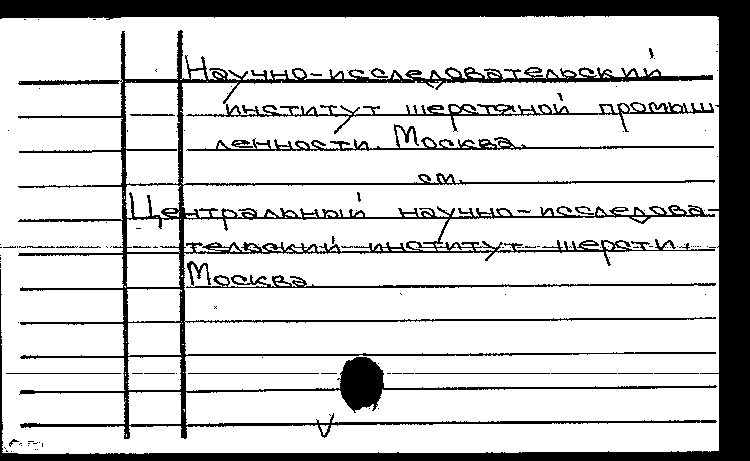 Научно-исследовательский
институт шерстяной промыш-
ленности. Москва.
см.
Центральный научно-исследова-
тельский институт шерсти.
Москва.